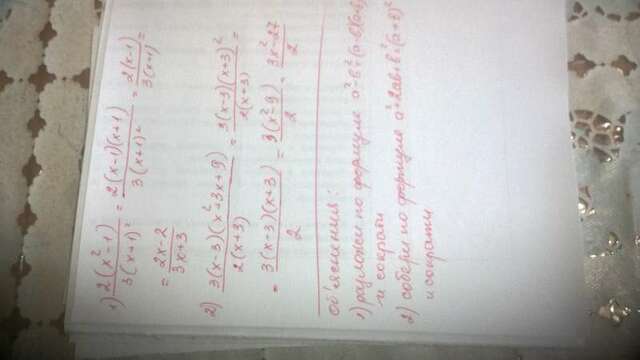 1) 2(x²-1)/3(x+1)² = 2(x-1)(x+1)/3(x+1)² = 2(x-1)/3(x+1) =
= 2x-2/3x+3
2) 3(x-3)(x²+3x+9)/2(x+3) = 3(x-3)(x+3)²/2(x+3) =
= 3(x-3)(x+3)/2 = 3(x²-9)/2 = 3x²-27/2
объяснения:
1) разложи по формуле a²-b²=(a-b)(a+b)
и сократи
2) собери по формуле a²+2ab+b²=(a+b)²
и сократи